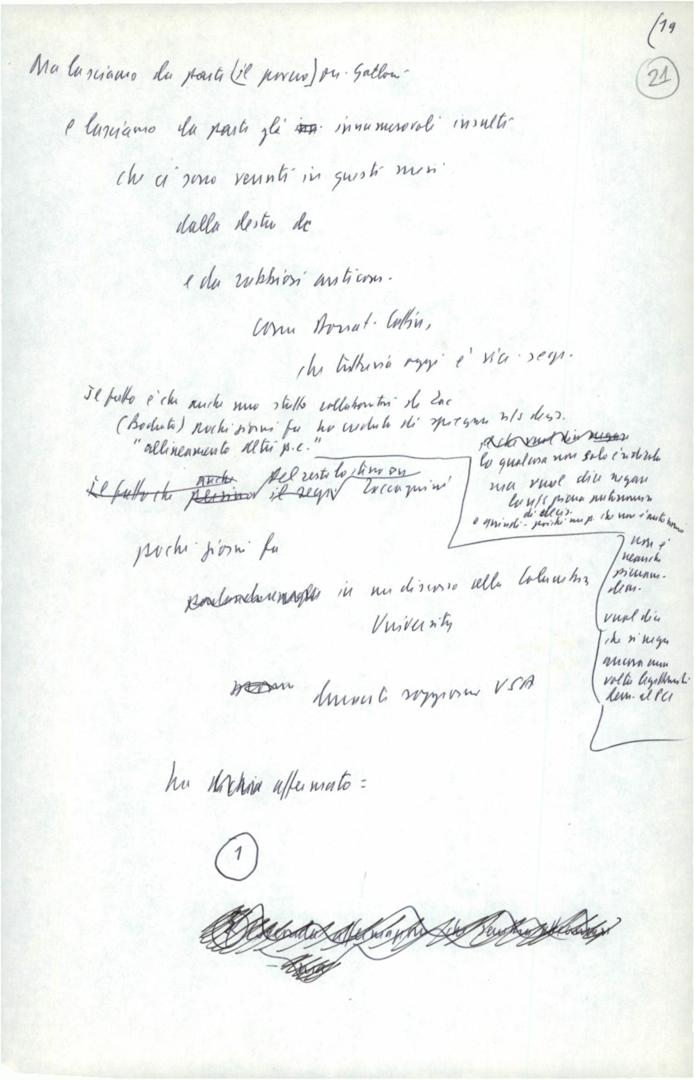 (19
21
Ma lasciamo da parte (il povero) on. Galloni
e lasciamo da parte gli innumerevoli insulti
che ci sono venuti in questi mesi
dalla destra dc
e da rabbiosi anticom.
come Donat-Cattin,
che tuttavia oggi è vice-segr.
Il fatto è che anche uno stretto collaboratore di Zac
(Bodrato) pochi giorni fa ha creduto di spiegare n/s decis.
"allineamento altri p.c."
lo qual cosa non solo è ridicolo
ma vuol dire negare
la n/s piena autonomia
di decis.
e quindi - poiché un p. che non è autonomo
non è
neanche
pienam.
dem.
vuol dire
che si nega
ancora una
volta legittimità
dem. al PCI
Il fatto che anche persino il segr.
Del resto lo stesso on Zaccagnini
pochi giorni fa
in un discorso alla Columbia
University
durante soggiorno USA
ha affermato =
1